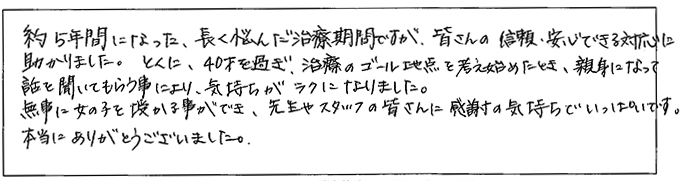 約5年間になった、長く悩んだ治療期間ですが、皆さんの信頼・安心できる対応に
助かりました。とくに、40才を過ぎ、治療のゴール地点を考え始めたとき、親身になって
話を聞いてもらう事により、気持ちがラクになりました。
無事に女の子を授かる事ができ、先生やスタッフの皆さんに感謝の気持ちでいっぱいです。
本当にありがとうございました。